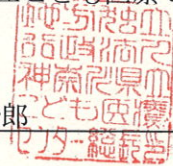 地方独立
行政法人
神奈川県立
こども医療
センター総長
郎